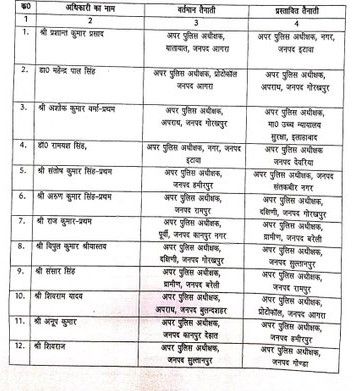 क्र0 अधिकारी का नाम वर्तमान तैनाती प्रस्तावित तैनाती
1 2 3 4
1. श्री प्रशान्त कुमार प्रसाद अपर पुलिस अधीक्षक, अपर पुलिस अधीक्षक, नगर,
यातायात, जनपद आगरा जनपद इटावा
2. डा0 महेन्द्र पाल सिंह अपर पुलिस अधीक्षक, प्रोटोकॉल अपर पुलिस अधीक्षक,
जनपद आगरा अपराध, जनपद गोरखपुर
3. श्री अशोक कुमार वर्मा-प्रथम अपर पुलिस अधीक्षक, अपर पुलिस अधीक्षक,
अपराध, जनपद गोरखपुर मा0 उच्च न्यायालय
सुरक्षा, इलाहाबाद
4. डॉ0 रामयश सिंह, अपर पुलिस अधीक्षक, नगर, जनपद अपर पुलिस अधीक्षक
इटावा जनपद देवरिया
5. श्री संतोष कुमार सिंह-प्रथम अपर पुलिस अधीक्षक, अपर पुलिस अधीक्षक,
जनपद हमीरपुर जनपद संतकबीर नगर
6. श्री अरुण कुमार सिंह-प्रथम अपर पुलिस अधीक्षक, अपर पुलिस अधीक्षक,
जनपद रामपुर दक्षिणी, जनपद गोरखपुर
7. श्री राज कुमार-प्रथम अपर पुलिस अधीक्षक, अपर पुलिस अधीक्षक,
पूर्वी, जनपद कानपुर नगर ग्रामीण, जनपद बरेली
8. श्री विपुल कुमार श्रीवास्तव अपर पुलिस अधीक्षक, अपर पुलिस अधीक्षक,
दक्षिणी, जनपद गोरखपुर जनपद सुल्तानपुर
9. श्री संसार सिंह अपर पुलिस अधीक्षक, अपर पुलिस अधीक्षक,
ग्रामीण, जनपद बरेली जनपद रामपुर
10. श्री शिवराम यादव अपर पुलिस अधीक्षक, अपर पुलिस अधीक्षक,
अपराध, जनपद बुलन्दशहर प्रोटोकॉल, जनपद आगरा
11. श्री अनूप कुमार अपर पुलिस अधीक्षक, अपर पुलिस अधीक्षक,
जनपद कानपुर देहात जनपद हमीरपुर
12. श्री शिवराज अपर पुलिस अधीक्षक, अपर पुलिस अधीक्षक,
जनपद सुल्तानपुर जनपद गोण्डा